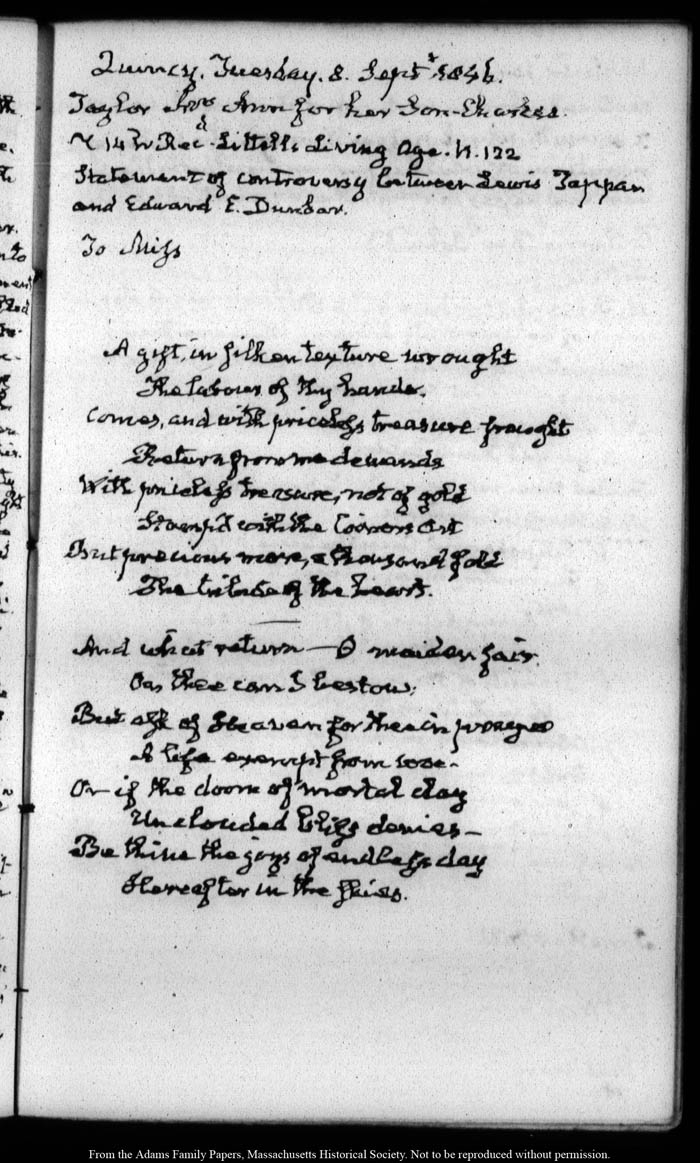 Quincy. Tuesday. 8. Septr. 1846.
Taylor Mrs Ann for her Son - Charles.
14 Recd. Littell's Living Age. N. 122
Statement of controversy between Lewis Tappan
and Edward E. Dunbar.
To Miss
A gift, in silken texture wrought
The labour of thy hands.
Comes, and with priceless treasure fraught
Return from me demands
With priceless treasure, not of gold
Stamp'd with the Coiners Art
But precious more, a thousand fold
The tribute of the heart.
And what return — O maiden fair
On thee can I bestow;
But ask of Heaven for thee in prayer
A life exempt from woe -
Or if the doom of mortal clay
Unclouded bliss denies —
Be thine the joys of endless day
Hereafter in the skies.
From the Adams Family Papers, Massachusetts Historical Society. Not to be reproduced without permission.